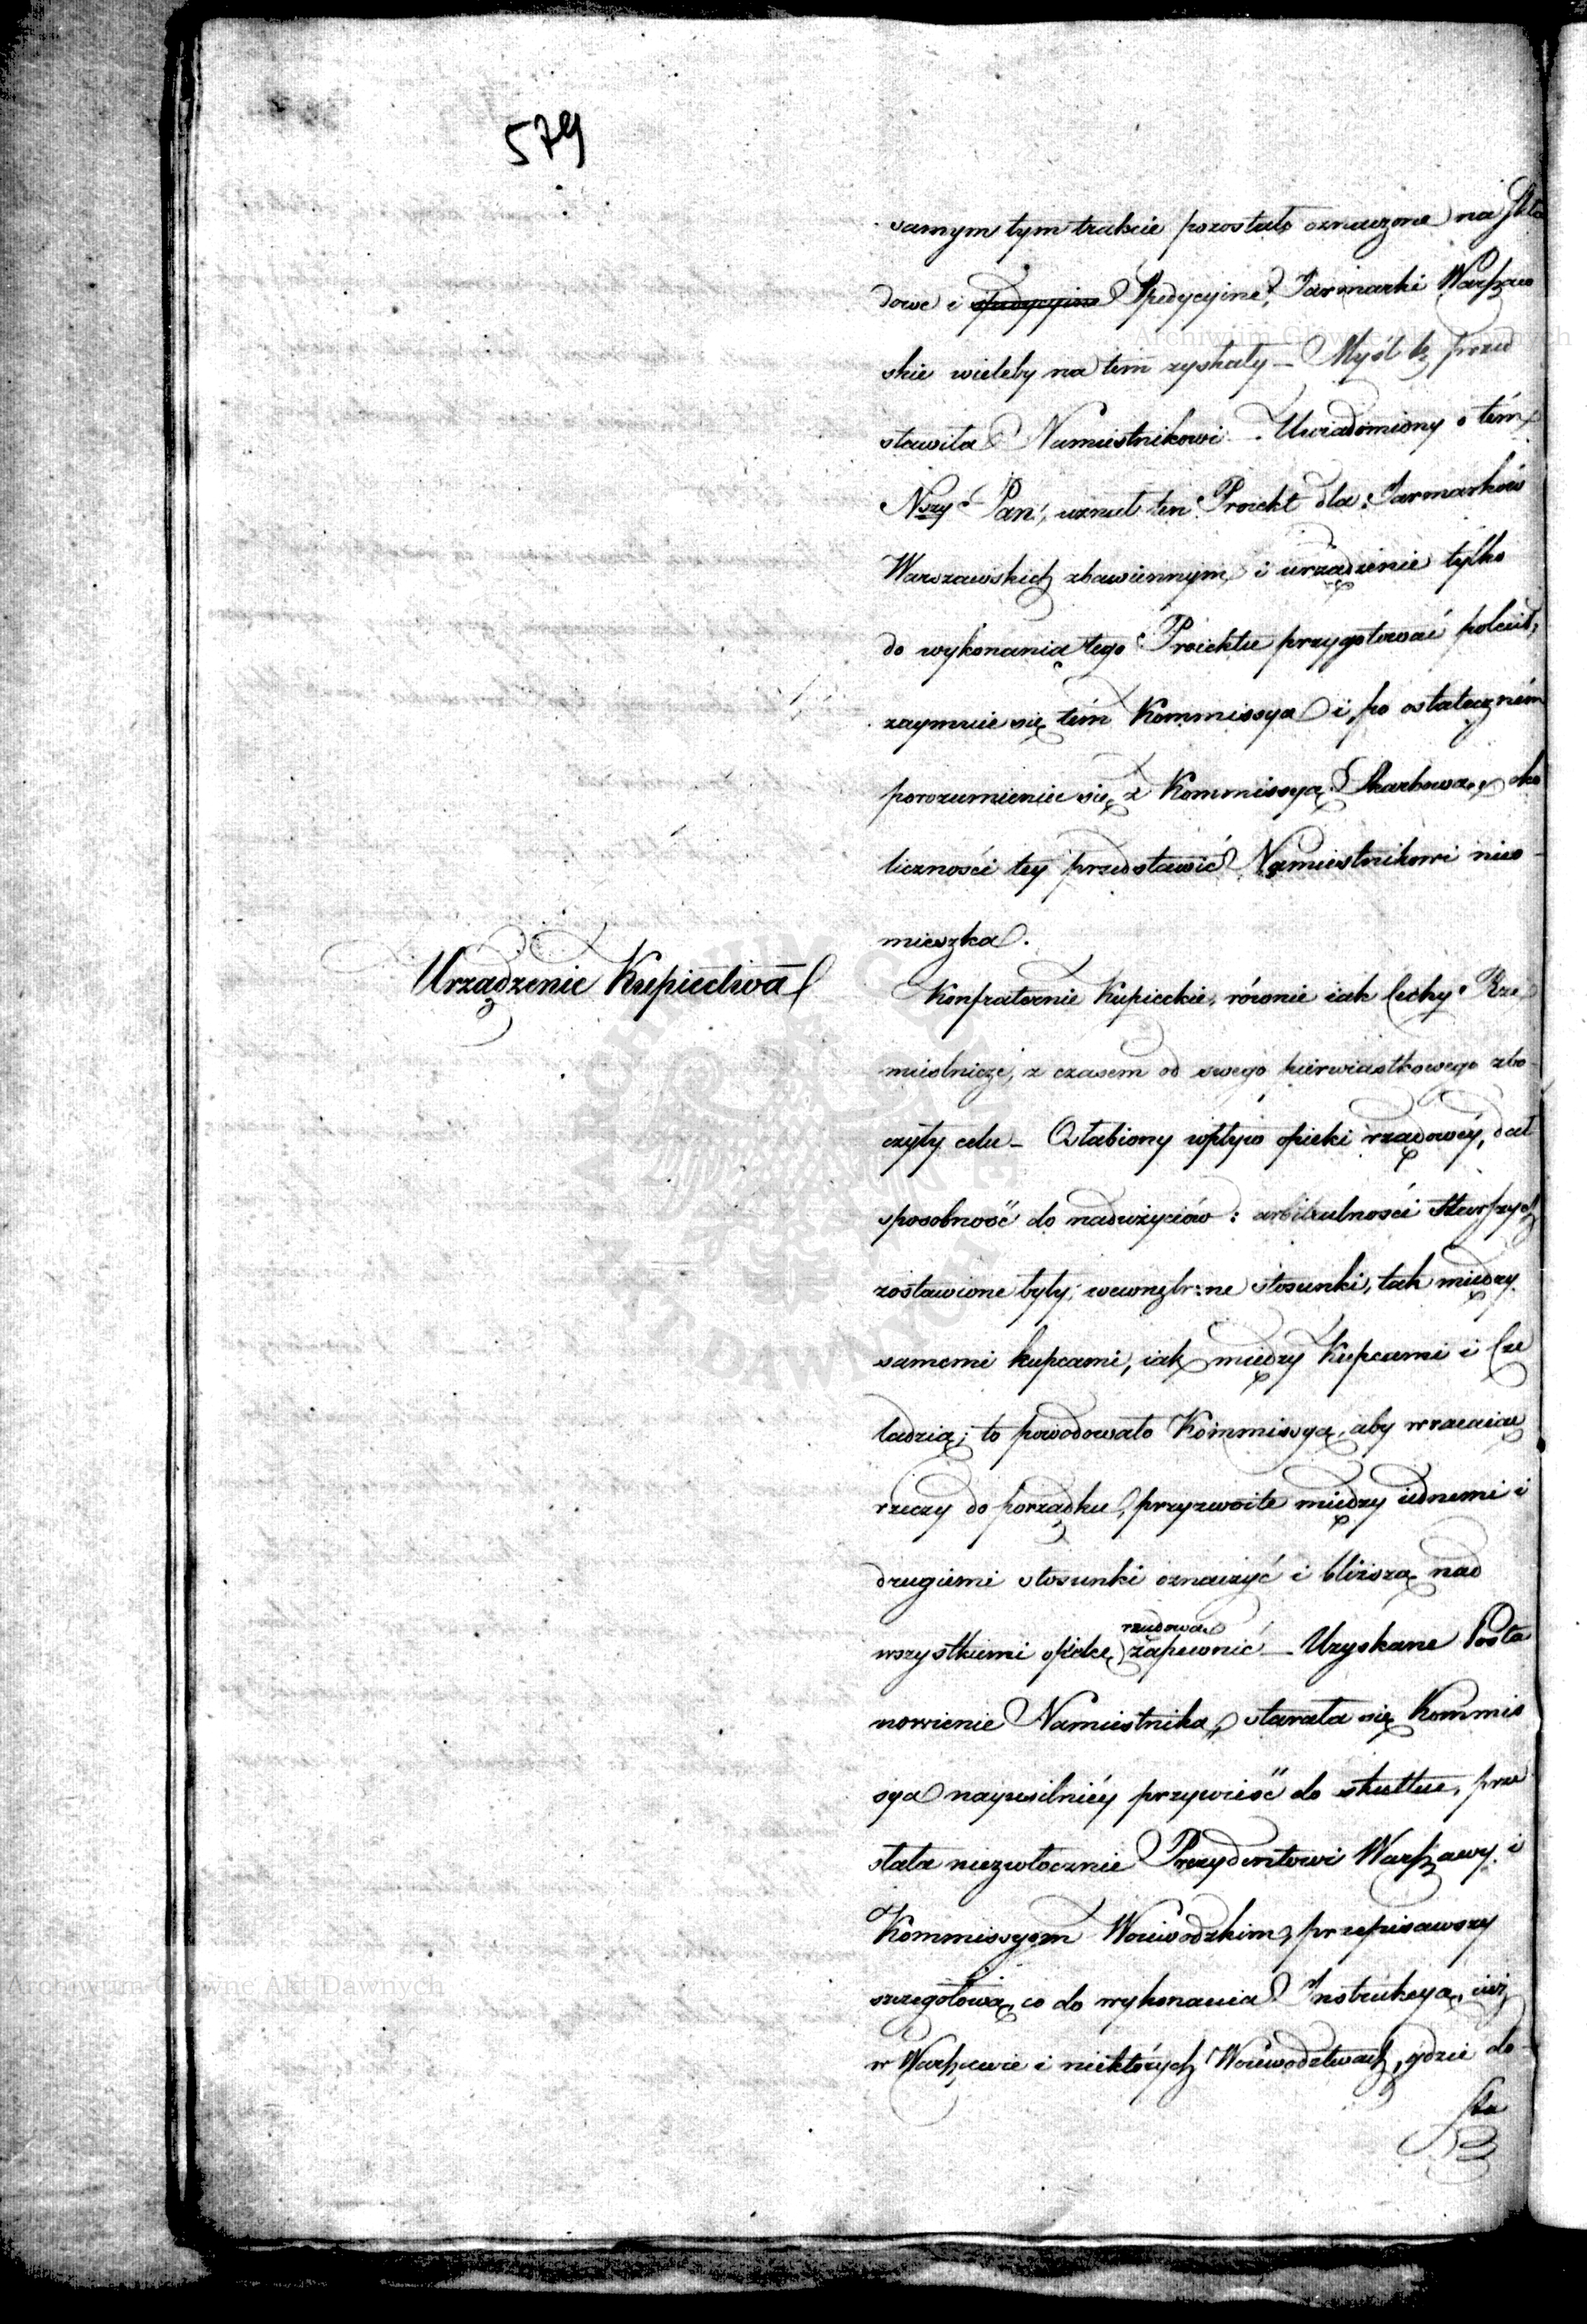 579
samym tym trakcie pozostało oznaczone na skła
dowe i spedycyine Spedycyine, Jarmarki Warszaw
skie wieleby na tem zyskały – Myśl tę przed
stawiła Namiestnikowi – Uwiadomiony o tém
Nszy Pan, uznał ten Proiekt dla Jarmarków
Warszawskich zbawiennym i urządzenie tylko
do wykonania tego Proiektu przygotować polecił,
zaymuie się tém Kommissya i po ostateczném
porozumieniu się z Kommissyą Skarbową, oko
liczności tey przedstawić Namiestnikowi nieo-
mieszka.
Urządzenie Kupiectwa
Konfraternie Kupieckie, równie iak Cechy Rze
mieślnicze, z czasem od swego pierwiastkowego zbo-
czyły celu – Osłabiony wpływ opieki rządowéy, dał
sposobność do nadużyciów: arbitralności Starszych
zostawione były wewnętr:ne stosunki, tak między
samemi kupcami, iak między Kupcami i Cze
ladzią; to powodowało Kommissyą, aby wracaiąc
rzeczy do porządku, przyzwoite między iednemi i
drugiemi stosunki oznaczyć i bliższą nad
wszystkiemi opiekę rządową zapewnić – Uzyskane Posta
nowienie Namiestnika, starała się Kommis
sya nayusilniéy przywieść do skutku, prze
słała niezwłocznie Prezydentowi Warszawy i
Kommissyom Woiewodzkim, przepisawszy
szczegółową co do wykonania Instrukcyą, iuż
w Warszawie i niektórych Woiewodztwach, gdzie do-
sta
Archiwum Główne Akt Dawnych
Archiwum Główne Akt Dawnych